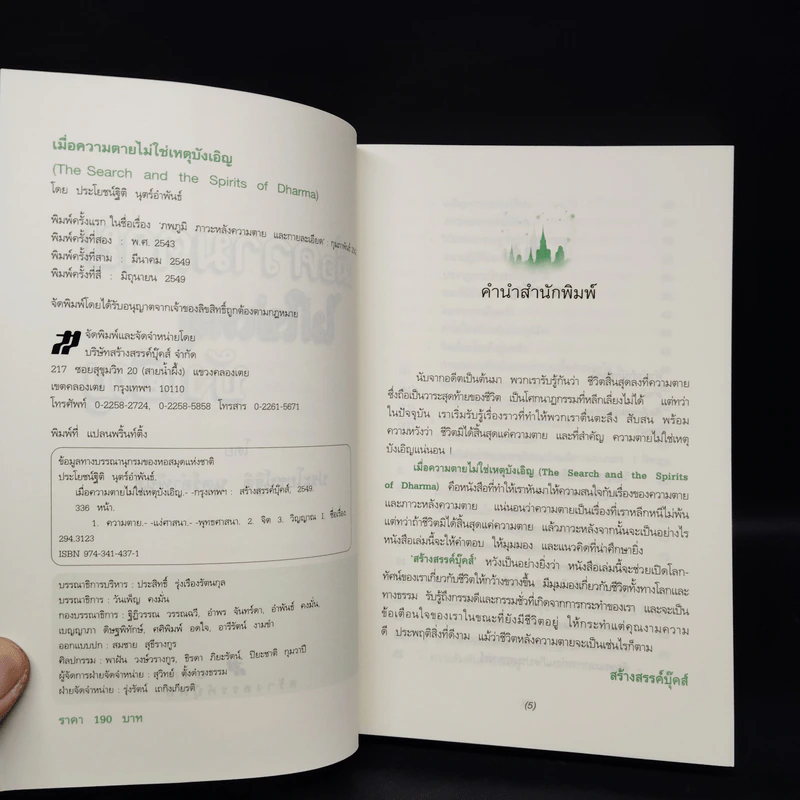 เมื่อความตายไม่ใช่เหตุบังเอิญ
(The Search and the Spirits of Dharma)
โดย ประโยชน์ฐิติ นุตร์อำพันธ์
พิมพ์ครั้งแรก ในชื่อเรื่อง "ภพภูมิ ภาวะหลังความตาย และกายละเอียด"
พิมพ์ครั้งที่สอง : พ.ศ. 2543
พิมพ์ครั้งที่สาม : มีนาคม 2549
พิมพ์ครั้งที่สี่ : มิถุนายน 2549
จัดพิมพ์โดยได้รับอนุญาตจากเจ้าของลิขสิทธิ์ถูกต้องตามกฎหมาย
จัดพิมพ์และจัดจำหน่ายโดย
บริษัทสร้างสรรค์บุ๊คส์ จำกัด
217 ซอยสุขุมวิท 20 (สายน้ำผึ้ง) แขวงคลองเตย
เขตคลองเตย กรุงเทพฯ 10110
โทรศัพท์ 0-2258-2724, 0-2258-5858 โทรสาร 0-2261-5671
พิมพ์ที่ แปลนพริ้นท์ติ้ง
ข้อมูลทางบรรณานุกรมของหอสมุดแห่งชาติ
ประโยชน์ฐิติ นุตร์อำพันธ์.
เมื่อความตายไม่ใช่เหตุบังเอิญ.- -กรุงเทพฯ : สร้างสรรค์บุ๊คส์, 2549.
336 หน้า.
1. ความตาย.- -แง่ศาสนา.- -พุทธศาสนา. 2. จิต 3. วิญญาณ I. ชื่อเรื่อง.
294.3123
ISBN 974-341-437-1
บรรณาธิการบริหาร : ประสิทธิ์ รุ่งเรืองรัตนกุล
บรรณาธิการ : วันเพ็ญ คงมั่น
กองบรรณาธิการ : ฐิฏิวรรณ วรรณฉวี, อำพร จันทร์ดา, อำพันธ์ คงมั่น,
เบญญาภา ดิษฐพิทักษ์, คศิพิมพ์ อดใจ, อารีรัตน์ งามขำ
ออกแบบปก : สมชาย สุชีรางกูร
ศิลปกรรม : พาฝัน วงษ์วรางกูร, ธีรดา ภิยะรัตน์, ปิยะชาติ กุมวาปี
ผู้จัดการฝ่ายจัดจำหน่าย : สุวิทย์ ตั้งดำรงธรรม
ฝ่ายจัดจำหน่าย : รุ่งรัตน์ เถกิงเกียรติ
ราคา 190 บาท
คำนำสำนักพิมพ์
นับจากอดีตเป็นต้นมา พวกเรารับรู้กันว่า ชีวิตสิ้นสุดลงที่ความตาย
ซึ่งถือเป็นวาระสุดท้ายของชีวิต เป็นโศกนาฏกรรมที่หลีกเลี่ยงไม่ได้ แต่ทว่า
ในปัจจุบัน เราเริ่มรับรู้เรื่องราวที่ทำให้พวกเราตื่นตะลึง สับสน พร้อม
ความหวังว่า ชีวิตมิได้สิ้นสุดแค่ความตาย และที่สำคัญ ความตายไม่ใช่เหตุ
บังเอิญแน่นอน !
เมื่อความตายไม่ใช่เหตุบังเอิญ (The Search and the Spirits
of Dharma) คือหนังสือที่ทำให้เราหันมาให้ความสนใจกับเรื่องของความตาย
และภาวะหลังความตาย แน่นอนว่าความตายเป็นเรื่องที่เราหลีกหนีไม่พ้น
แต่ทว่าถ้าชีวิตมิได้สิ้นสุดแค่ความตาย แล้วภาวะหลังจากนั้นจะเป็นอย่างไร
หนังสือเล่มนี้จะให้คำตอบ ให้มุมมอง และแนวคิดที่น่าศึกษายิ่ง
'สร้างสรรค์บุ๊คส์' หวังเป็นอย่างยิ่งว่า หนังสือเล่มนี้จะช่วยเปิดโลก-
ทัศน์ของเราเกี่ยวกับชีวิตให้กว้างขวางขึ้น มีมุมมองเกี่ยวกับชีวิตทั้งทางโลกและ
ทางธรรม รับรู้ถึงกรรมดีและกรรมชั่วที่เกิดจากการกระทำของเรา และจะเป็น
ข้อเตือนใจของเราในขณะที่ยังมีชีวิตอยู่ ให้กระทำแต่คุณงามความ
ดี ประพฤติสิ่งที่ดีงาม แม้ว่าชีวิตหลังความตายจะเป็นเช่นไรก็ตาม
สร้างสรรค์บุ๊คส์
(5)